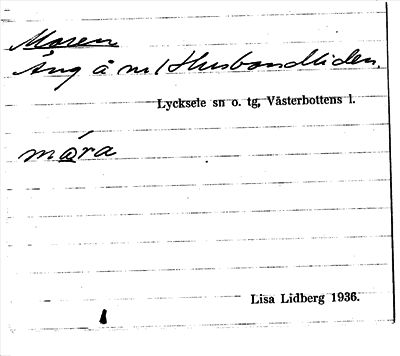 Moren
Äng å nr 1 Husbondliden.
Lycksele sn o. tg, Västerbottens l.
mǫ́ra
Lisa Lidberg 1936.